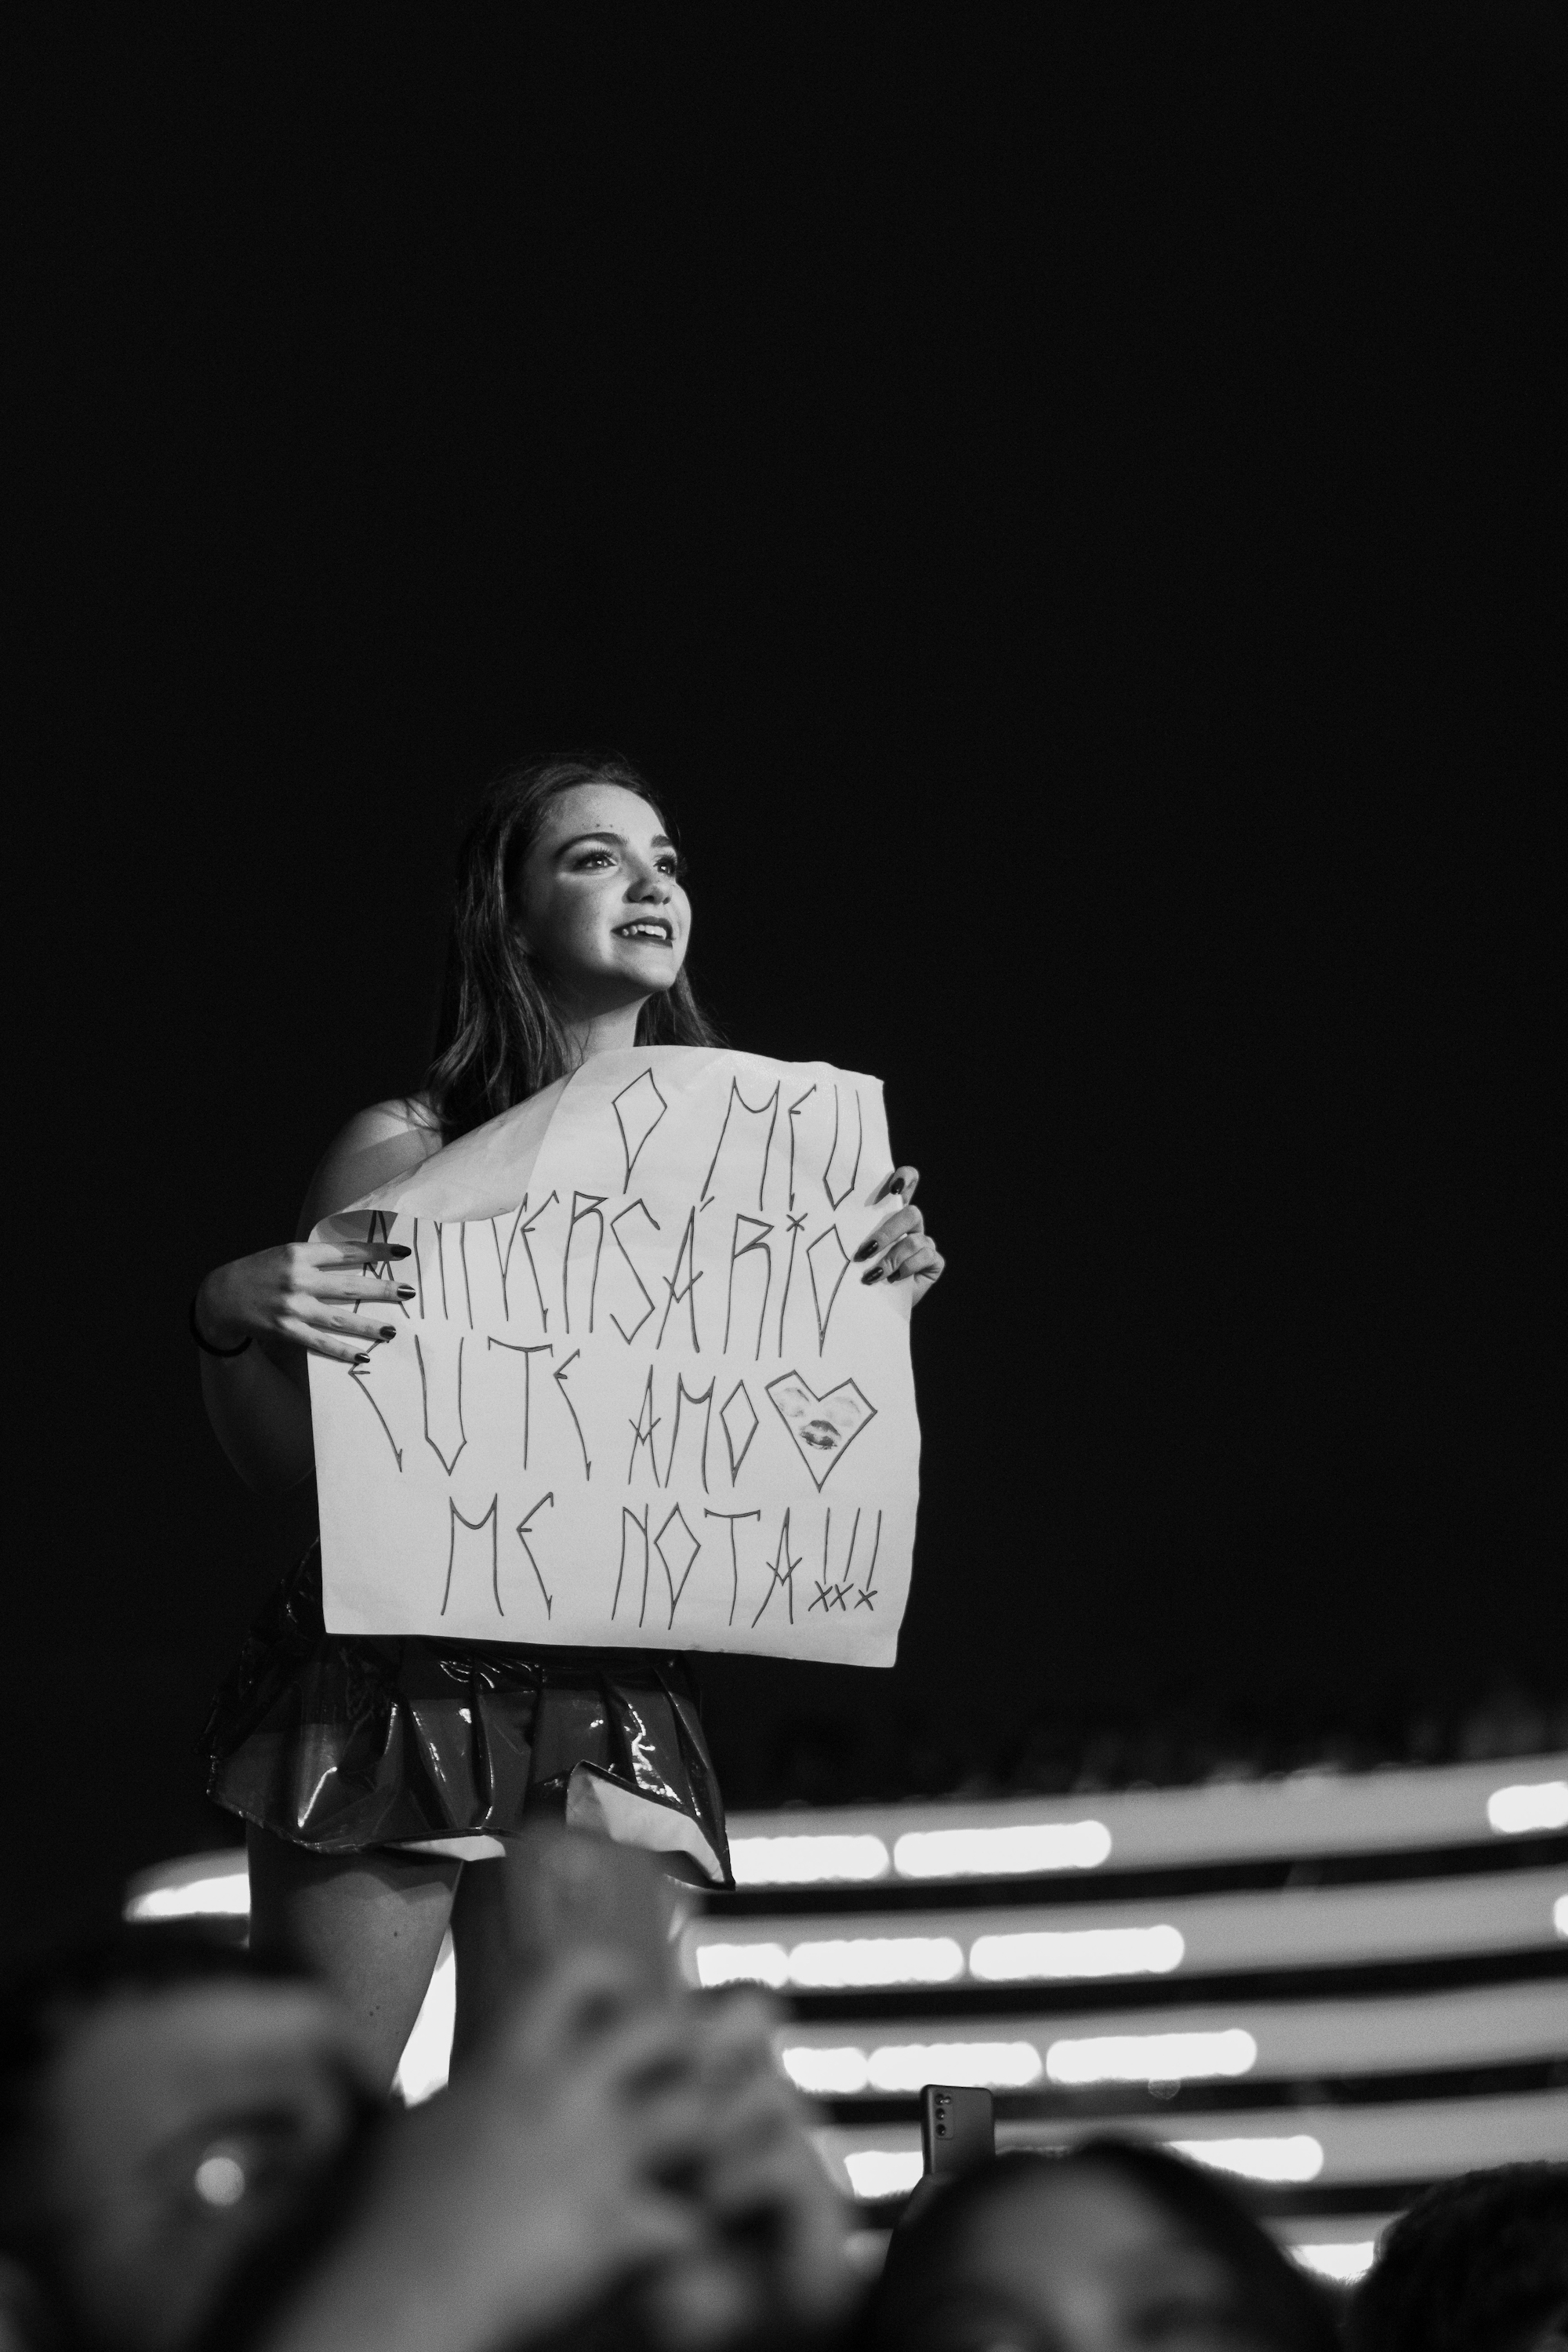 O MEU
ANIVERSÁRIO
EU TE AMO
ME NOTA!!!